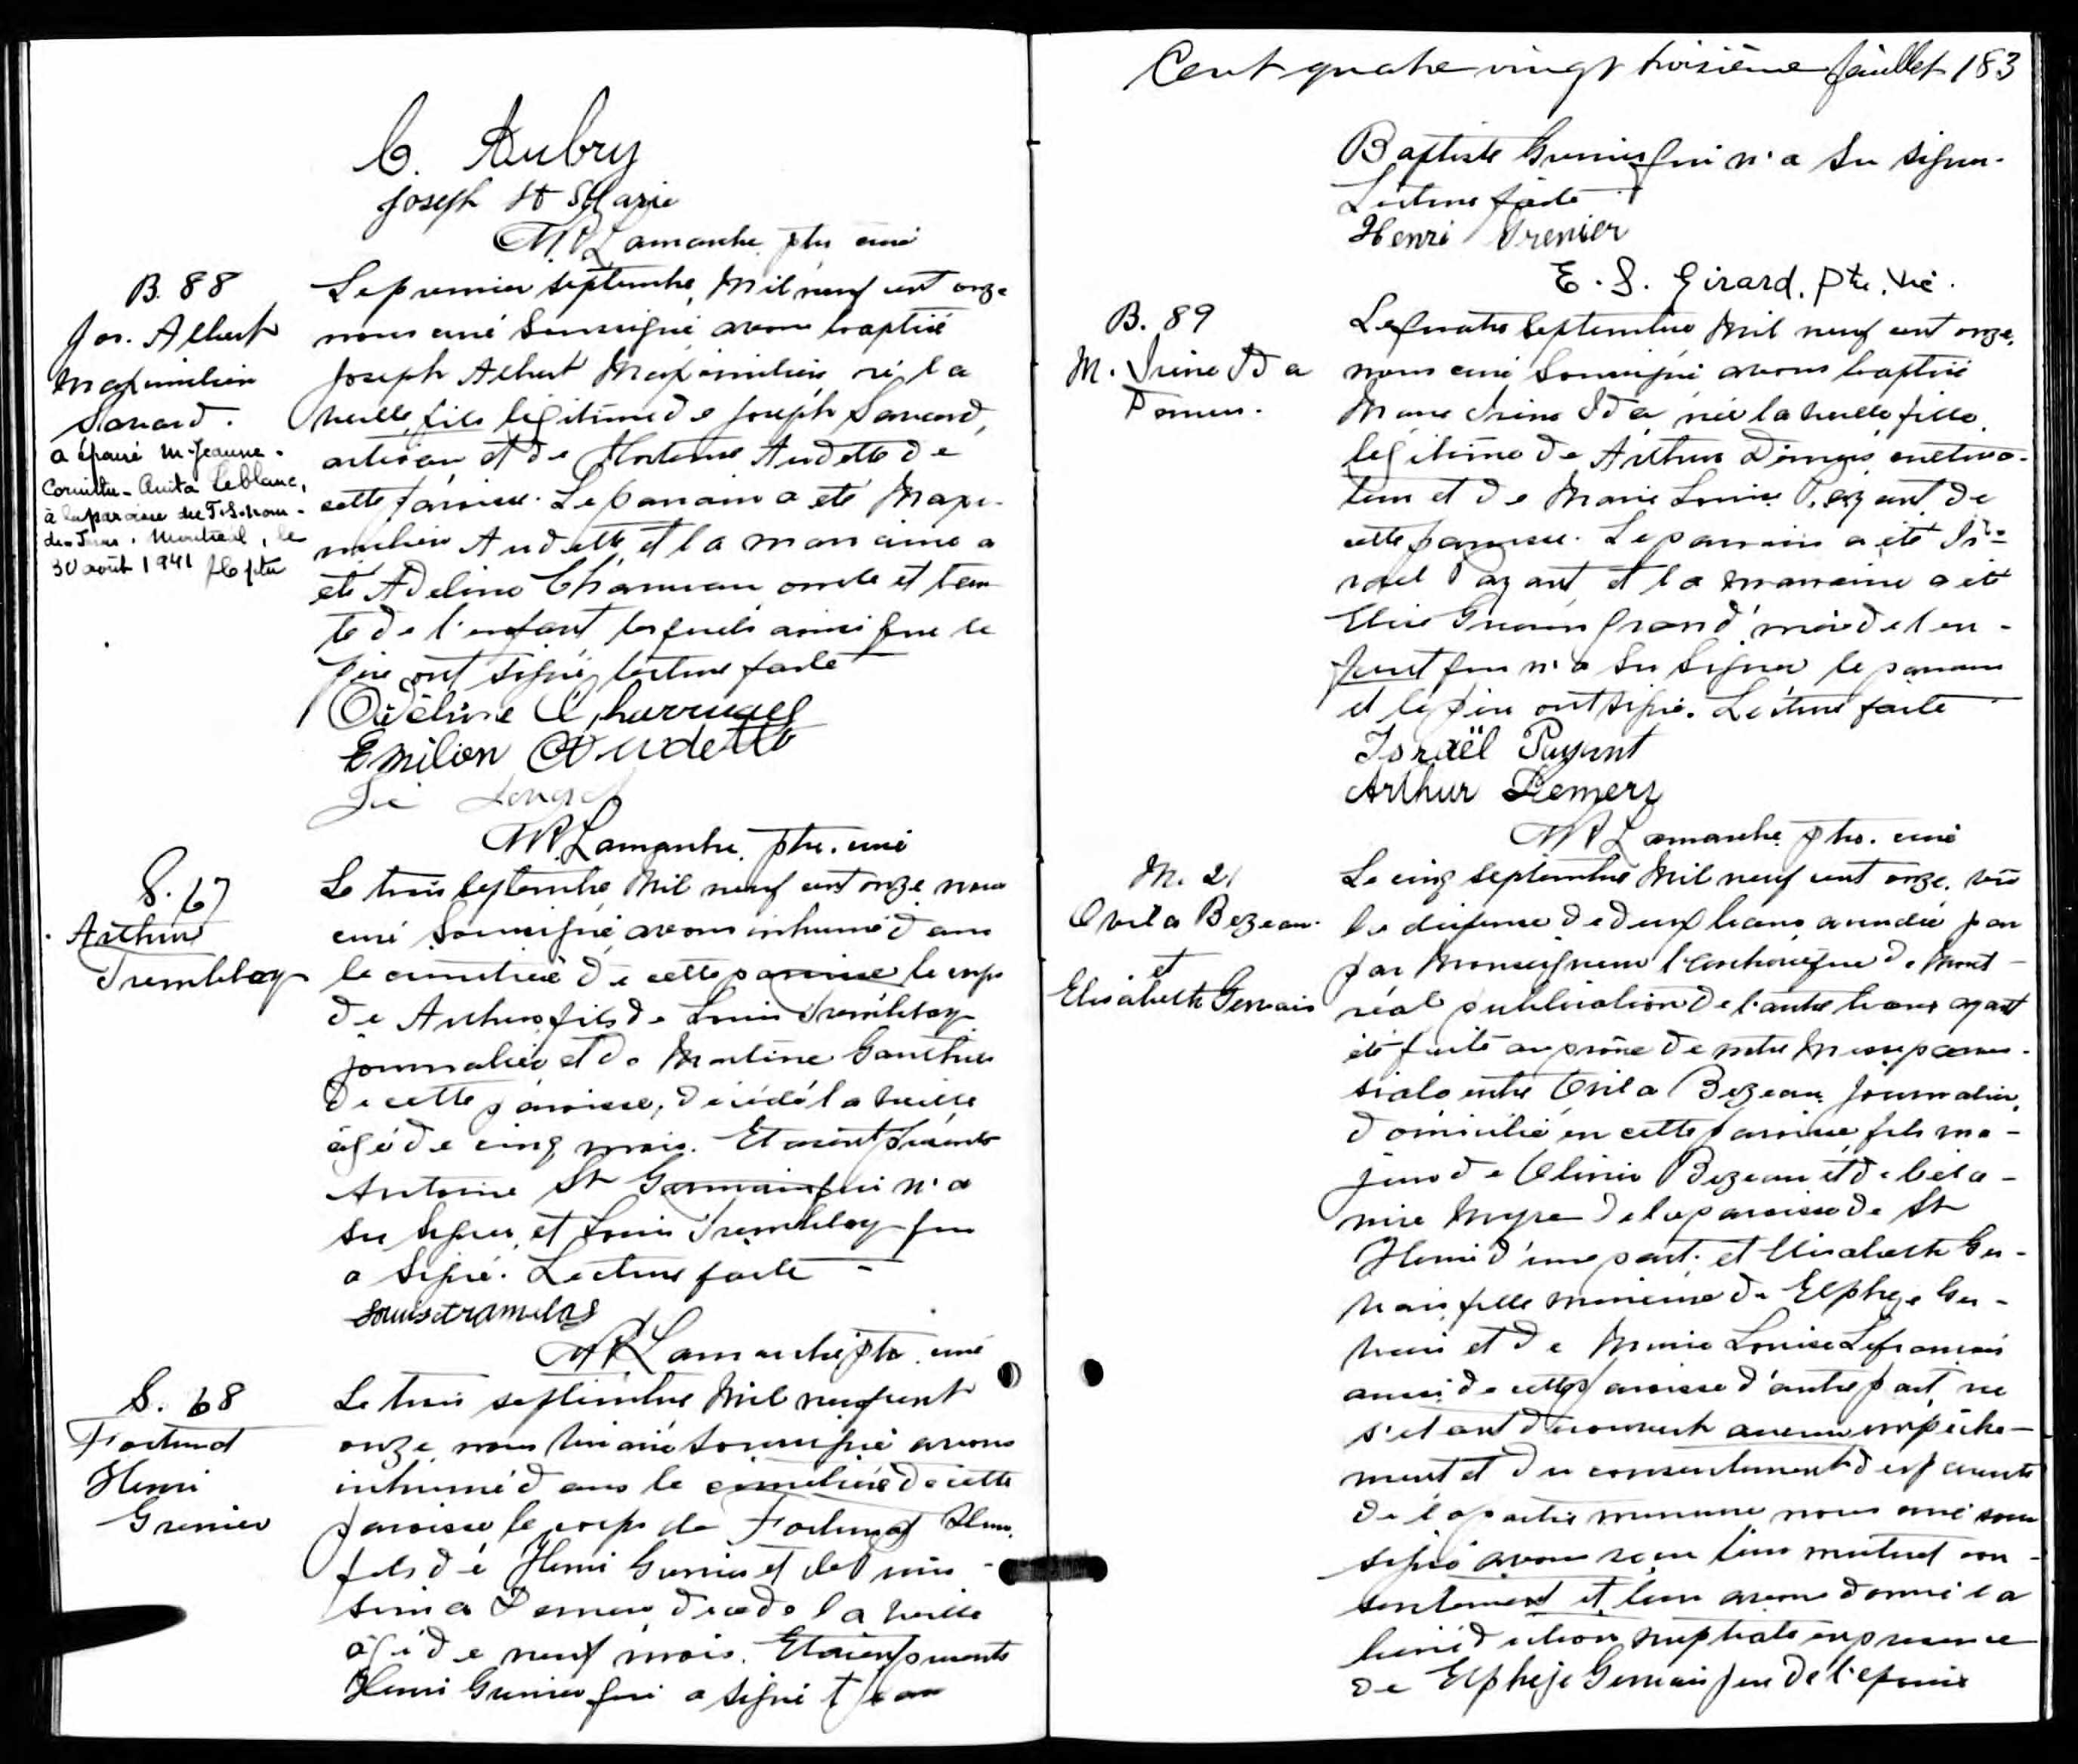 C. Aubry
Joseph St Marie
M P Lamarche ptre curé
B. 88
Jos. Albert
Maximilien
Savard.
a épousé M-Jeanne-
Corinthe-Anita Leblanc,
à la paroisse du T-S-Nom-
de-Jésus, Montréal, le
30 août 1941 ptre
Le premier septembre, Mil neuf cent onze
nous curé soussigné avons baptisé
Joseph Albert Maximilien né la
veille, fils légitime de Joseph Savard,
artisan et de Hortense Audette de
cette paroisse. Le parrain a été Maxi-
milien Audette et la marraine a
été Adeline Charruau oncle et tan
te de l'enfant lesquels ainsi que le
père ont signé, lecture faite
Adéline Charruau
Emilion Audette
M P Lamarche, ptre. curé
S. 67
Arthur
Tremblay
Le trois septembre, Mil neuf cent onze nous
curé soussigné avons inhumé dans
le cimetière de cette paroisse le corps
de Arthur fils de Louis Tremblay
journalier et de Martine Gauthier
de cette paroisse, décédé la veille
âgé de cinq mois. Etaient présents
Antoine St Germain qui n'a
su signer et Louis Tremblay qui
a signé. Lecture faite -
M P Lamarche ptre curé
S. 68
Fortunat
Henri
Grenier
Le trois septembre Mil neuf cent
onze, nous vicaire soussigné avons
inhumé dans le cimetière de cette
paroisse le corps de Fortunat Henri
fils de Henri Grenier et de
Demers décédé la veille
âgé de neuf mois. Etaient présents
Henri Grenier qui a signé et Jean
Cent quatre vingt troisième feuillet 183
Baptiste Grenier qui n'a su signer.
Lecture faite.
Henri Grenier
E. S. Girard. ptre. vic.
B. 89
M. Irène Ida
Demers.
Le quatre Septembre Mil neuf cent onze,
nous curé soussigné avons baptisé
Marie Irène Ida née la veille, fille
légitime de Arthur Demers cultiva-
teur et de Marie Louise Payant de
cette paroisse. Le parrain a été Is-
raël Payant et la marraine a été
Elise Guérin grand'mère de l'en-
fant qui n'a su signer le parrain
et le père ont signé. Lecture faite
Israël Payant
Arthur Demers
M P Lamarche ptre. curé
M. 21
Ovila Bezeau
et
Elisabeth Gervais
Le cinq septembre Mil neuf cent onze, vu
la dispense de deux bans accordée par
par Monseigneur l'Archevêque de Mont-
réal publication de l'autre bans ayant
été faite au prône de notre Messe parois-
siale entre Ovila Bezeau, journalier,
domicilié en cette paroisse, fils ma-
jeur de Bezeau et de Céla-
nire de la paroisse de St
Henri d'une part, et Elisabeth Ger-
vais fille mineure de Elphège Ger-
vais et de Marie Louise Lefrançois
aussi de cette paroisse d'autre part ne
s'étant découvert aucun empêche-
ment et du consentement des parents
de la partie mineure nous curé sous
signé avons reçu leur mutuel con-
sentement et leur avons donné la
bénédiction nuptiale en présence
de Elphège Gervais père de l'épouse